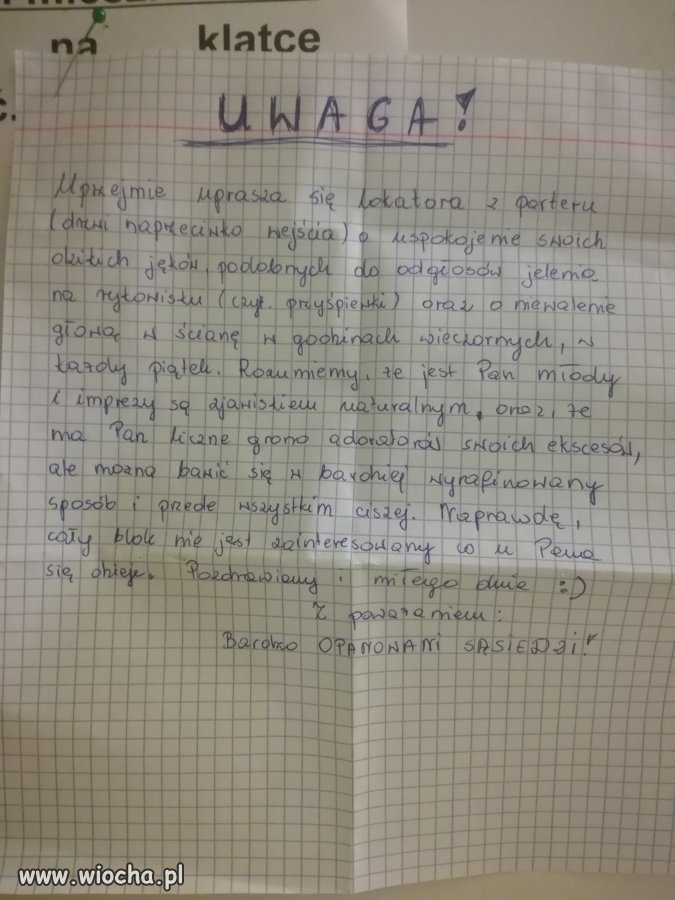 na klatce
UWAGA!
Uprzejmie uprasza się lokatora z parteru
(drzwi naprzeciwko wejścia) o uspokojenie swoich
dzikich jęków, podobnych do odgłosów jelenia
na rykowisku (czyt. przyśpiewki) oraz o niewalenie
głową w ścianę w godzinach wieczornych, w
każdy piątek. Rozumiemy, że jest Pan młody
i imprezy są zjawiskiem naturalnym, oraz, że
ma Pan liczne grono adoratorów swoich ekscesów,
ale można bawić się w bardziej wyrafinowany
sposób i przede wszystkim ciszej. Naprawdę,
cały blok nie jest zainteresowany co u Pana
się dzieje. Pozdrawiamy i miłego dnia :)
Z poważaniem:
Bardzo OPANOWANI SĄSIEDZI!
www.wiocha.pl